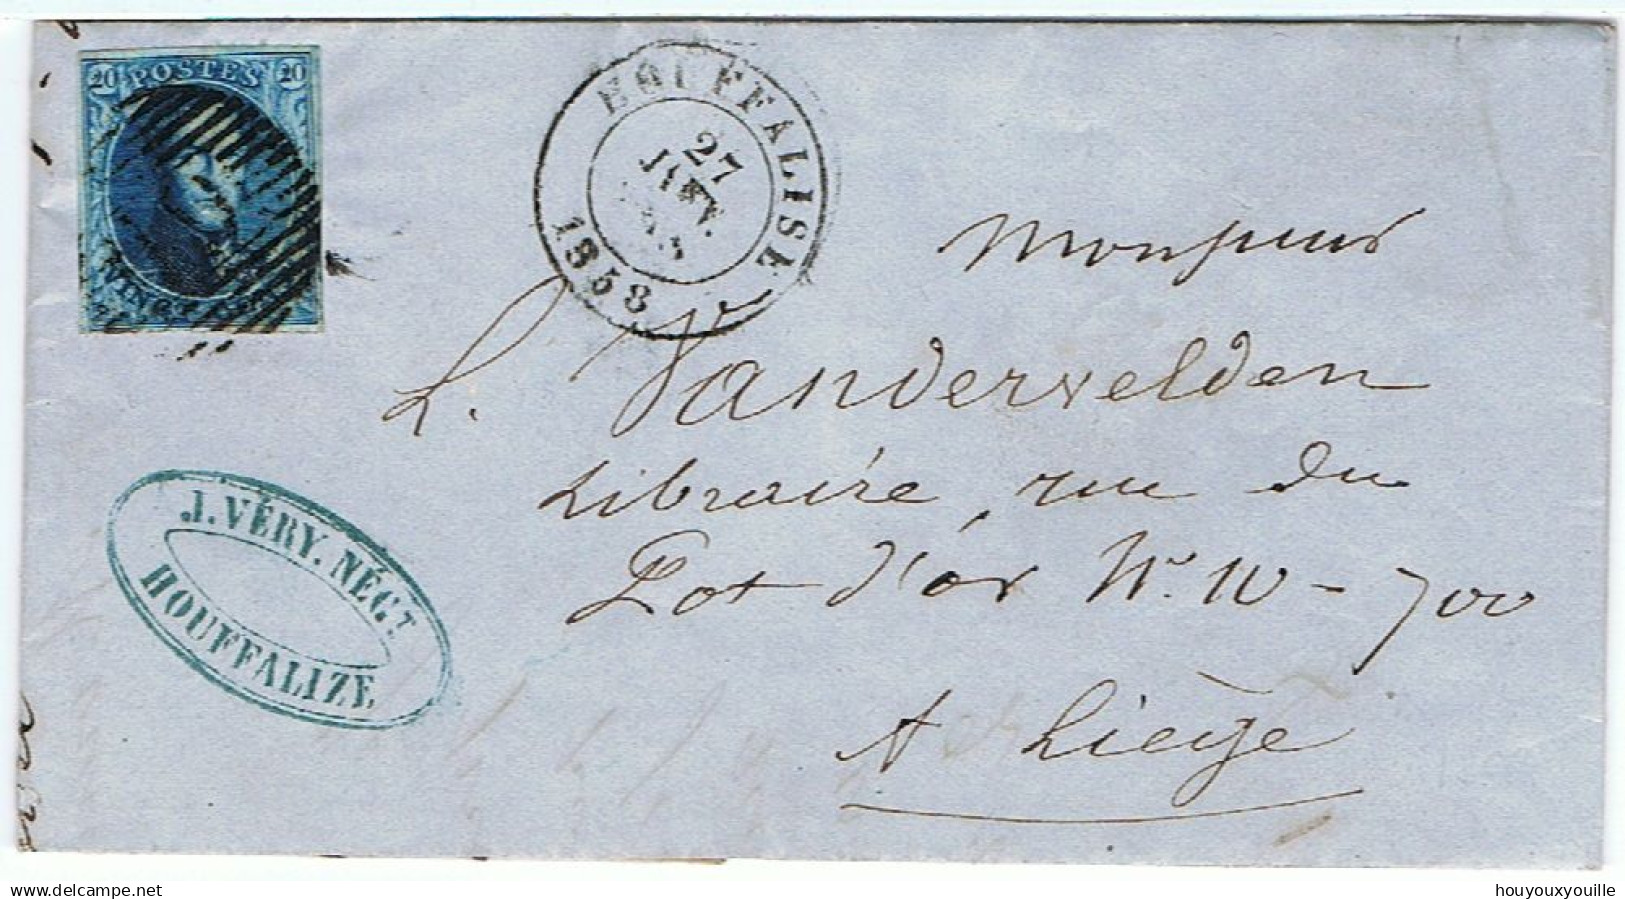 20 POSTES 20
VINGT
HOUFFALISE
27
JANV.
1858
Monsieur
L. Vandervelden
Libraire rue du
Pot d'or N° 10 - 700
A Liège
J. VÉRY. NÉG.T
HOUFFALIZE
delcampe.net
houyouxyouille